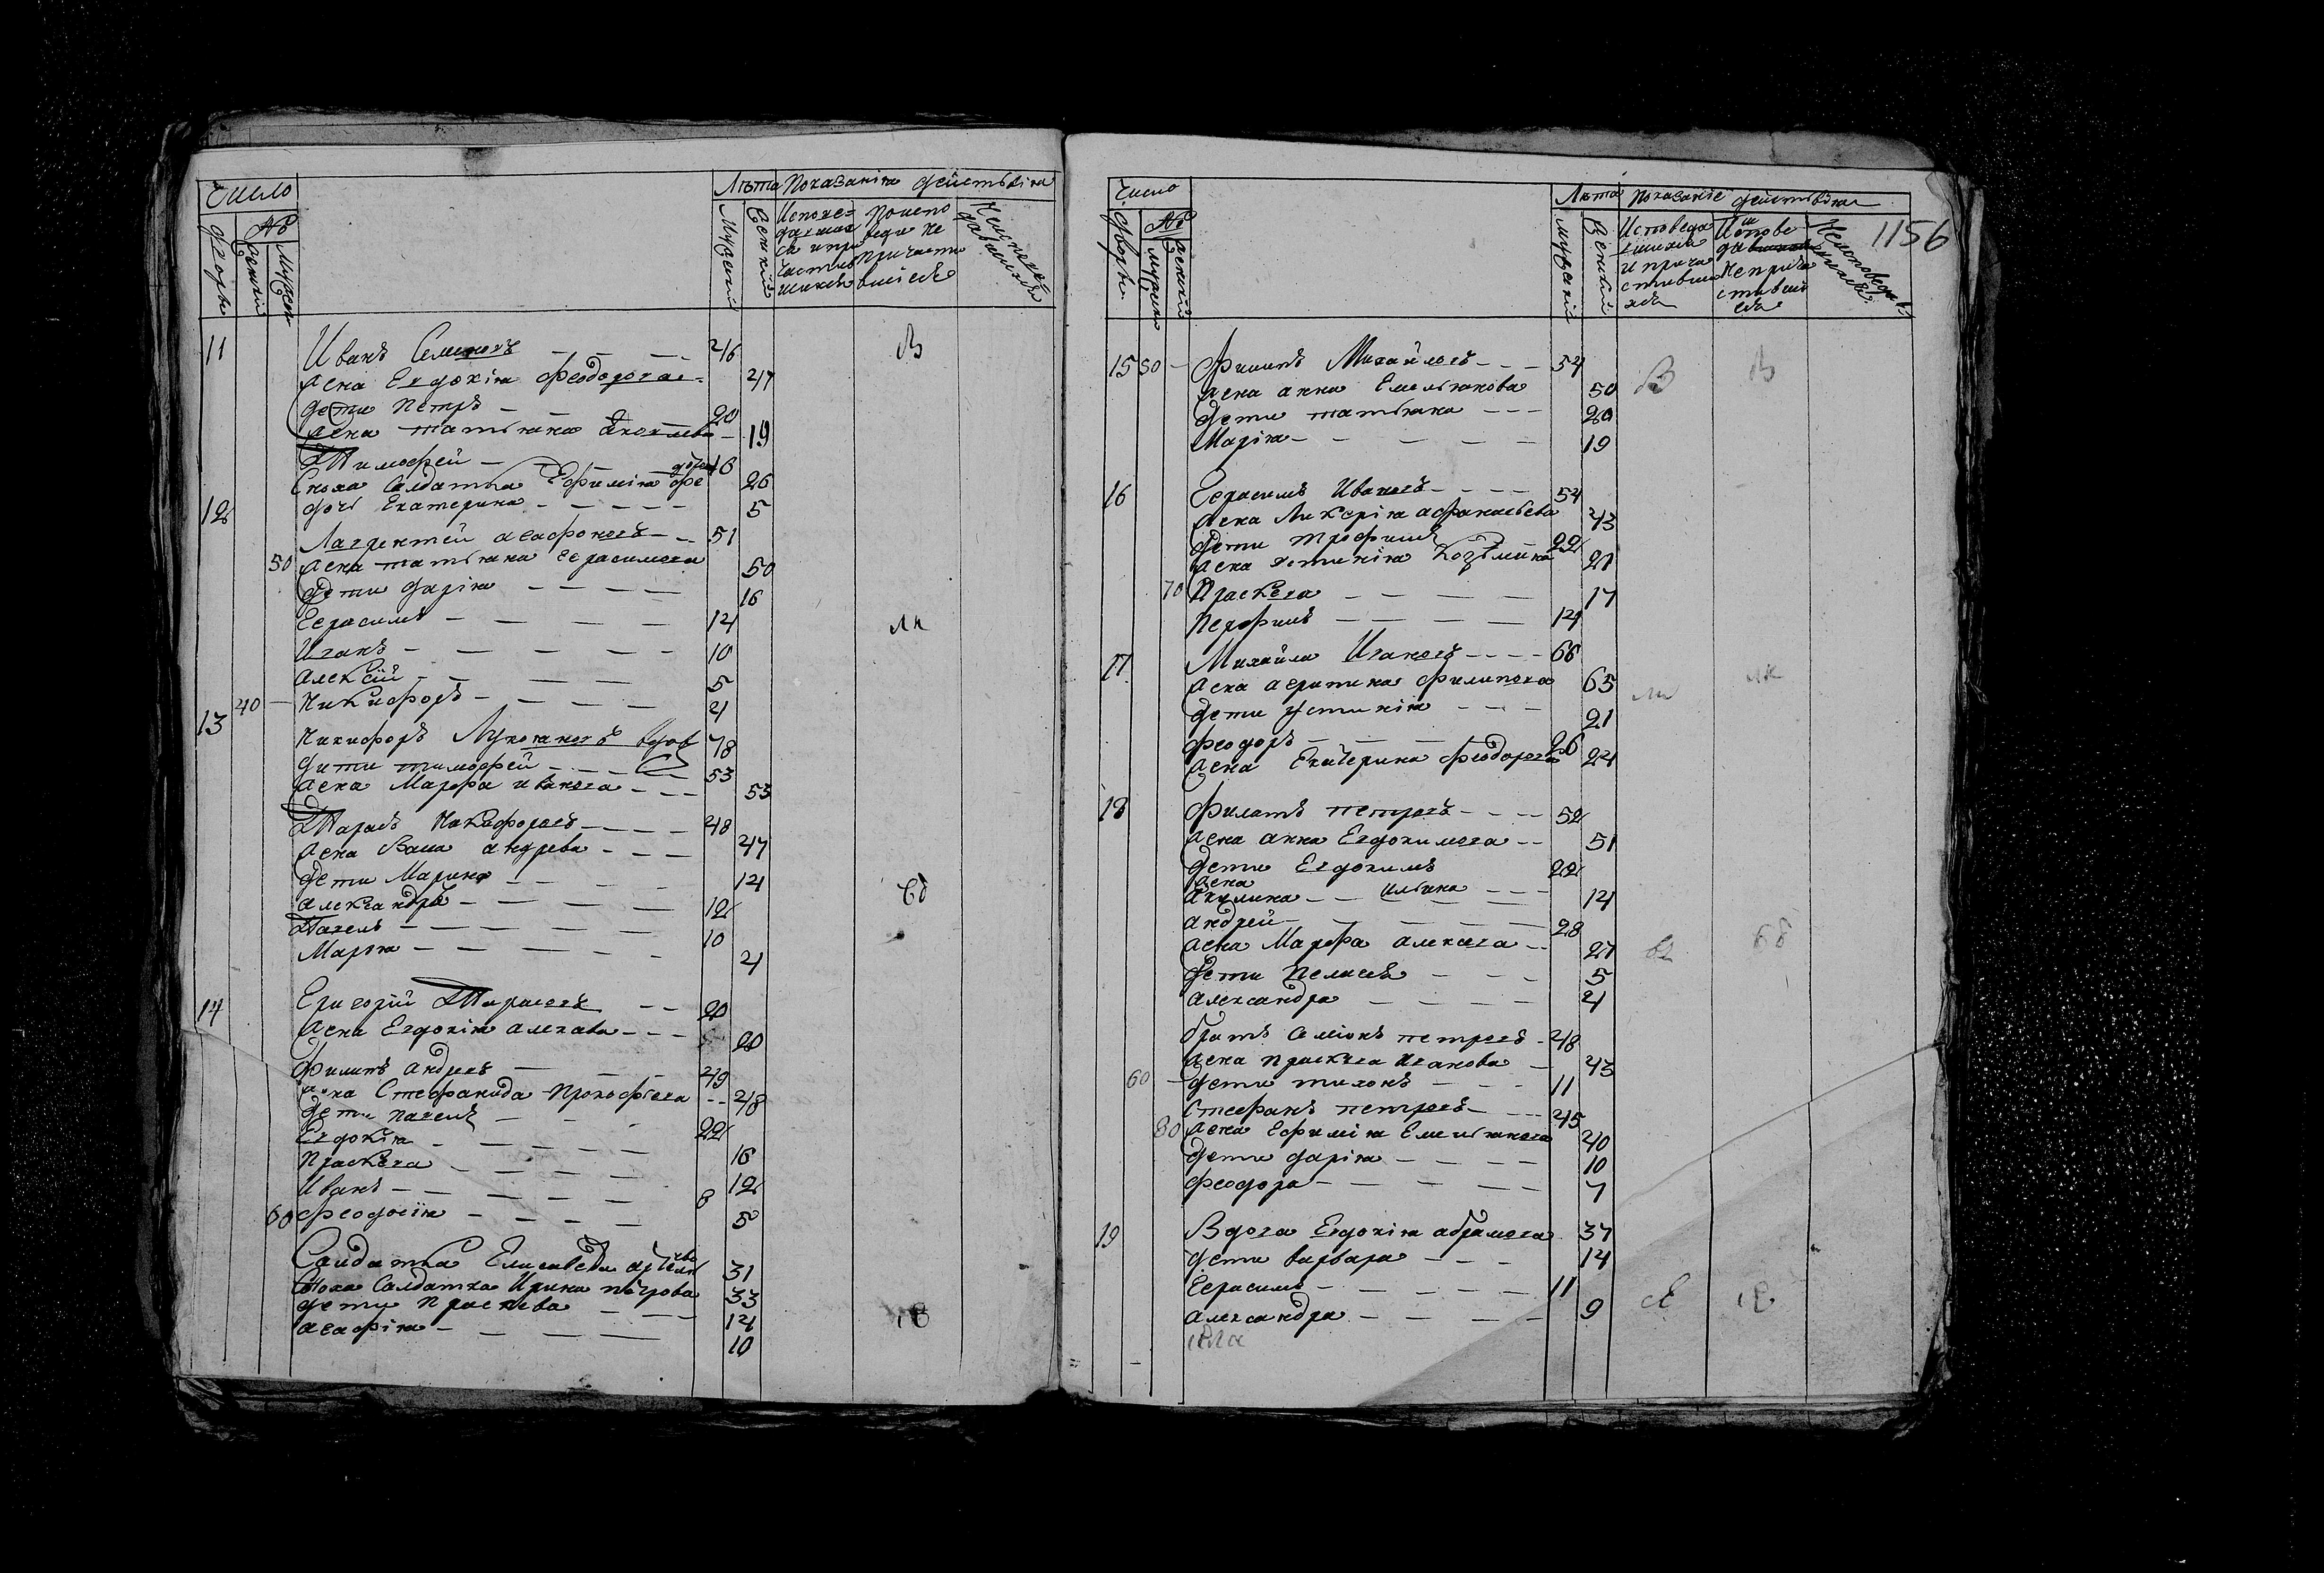 Число
Лѣта Показанія действіта
№
дворы
женски
мужеск
Мужескій
Женскій
Исповедавшихся и при частившихся
По испо веди не причасти вшіеся
Неисповедавшихся
11 Иванъ Семеновъ 46
жена Евдокіа Феодорова 47
дети Петръ 20
жена татьяна Яковлева 19
Тимофей 16
Сноха Салдатка Ефиміа Фе дорова 26
дочь Екатерина 5
12 Лаврентий Агафоновъ 51
50 жена татьяна Герасимова 50
дети даріа 16
Герасимъ 14
Иванъ 10
Алексій 5
40 Никифоръ 4
13 Никифоръ Лукояновъ вдов 78
дити тимофей 53
жена Марфа иванова 53
Тарасъ Никифоровъ 48
жена Васа андрева 47
дети Марина 14
александръ 12
Павелъ 10
Маріа 4
14 Григорій Тарасовъ 20
жена Евдокіа алекава 20
Филипъ андрев 49
жена Стефанида Прокофьева 48
дети павелъ 22
Евдокіа 16
Праскева 12
Иванъ 8
60 Феодосіа 5
Салдатка Елисавета артемьева 31
Сноха Салдатка Ирина петрова 33
дети праскева 14
агафіа 10
Число
Лѣта Показаніе действіа
1156
№
дворы
мужески
женски
мужескій
женскій
Исповеда вшихся и прича стившихся
И споведавши не прича стивши ся
Неисповедавшихся
15 50 Филипъ Михайловъ 54
жена анна Емельянова 50
дети татьяна 20
Маріа 19
16 Герасимъ Ивановъ 54
жена Ликеріа афанасьева 43
дети трофимъ 22
жена устиніа Козьмина 21
70 Праскева 17
Перфилъ 14
17 Михайла Ивановъ 66
жена агрипина Филипова 65
дети устиніа 21
Феодоръ 26
жена Екатерина Феодорова 24
18 Филатъ петровъ 52
жена анна Евдокимова 51
дети Евдокимъ 22
жена
акулина ильина 14
андрей 28
жена Марфа алексева 27
дети Пелагея 5
александра 4
братъ Семіонъ петровъ 48
жена праскева Иванова 43
60 дети тихонъ 11
Стефанъ петровъ 45
80 жена Ефиміа Емельянова 40
дети даріа 10
Феодора 7
19 Вдова Евдокіа абрамова 37
дети варвара 14
Герасимъ 11
александра 9